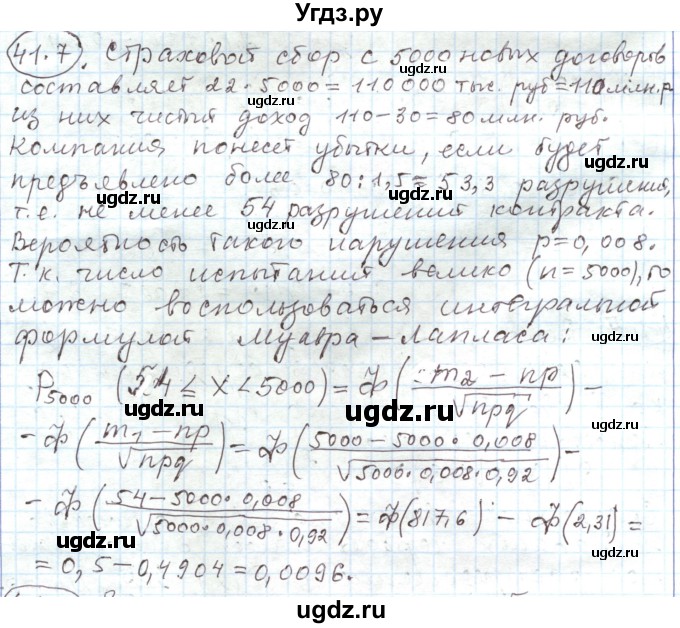 Угdz.ру
41.7. Страховой сбор с 5000 новых договоров
составляет 22·5000=110000 тыс. руб=110 млн.р
из них чистый доход 110-30=80 млн. руб.
Компания понесет убытки, если будет
предъявлено более 80:1,5=53,3 разрушения,
т.е. не менее 54 разрушений контракта.
Вероятность такого нарушения p=0,008.
Т.к. число испытаний велико (n=5000), то
можно воспользоваться интегральной
формулой Муавра-Лапласа:
P5000 (54≤X<5000)=Ф((m2-np)/√npq)-
-Ф((m1-np)/√npq)=Ф((5000-5000·0,008)/√5000·0,008·0,92)-
-Ф((54-5000·0,008)/√5000·0,008·0,92)=Ф(817,6)-Ф(2,31)=
=0,5-0,4904=0,0096.
ugdz.ru